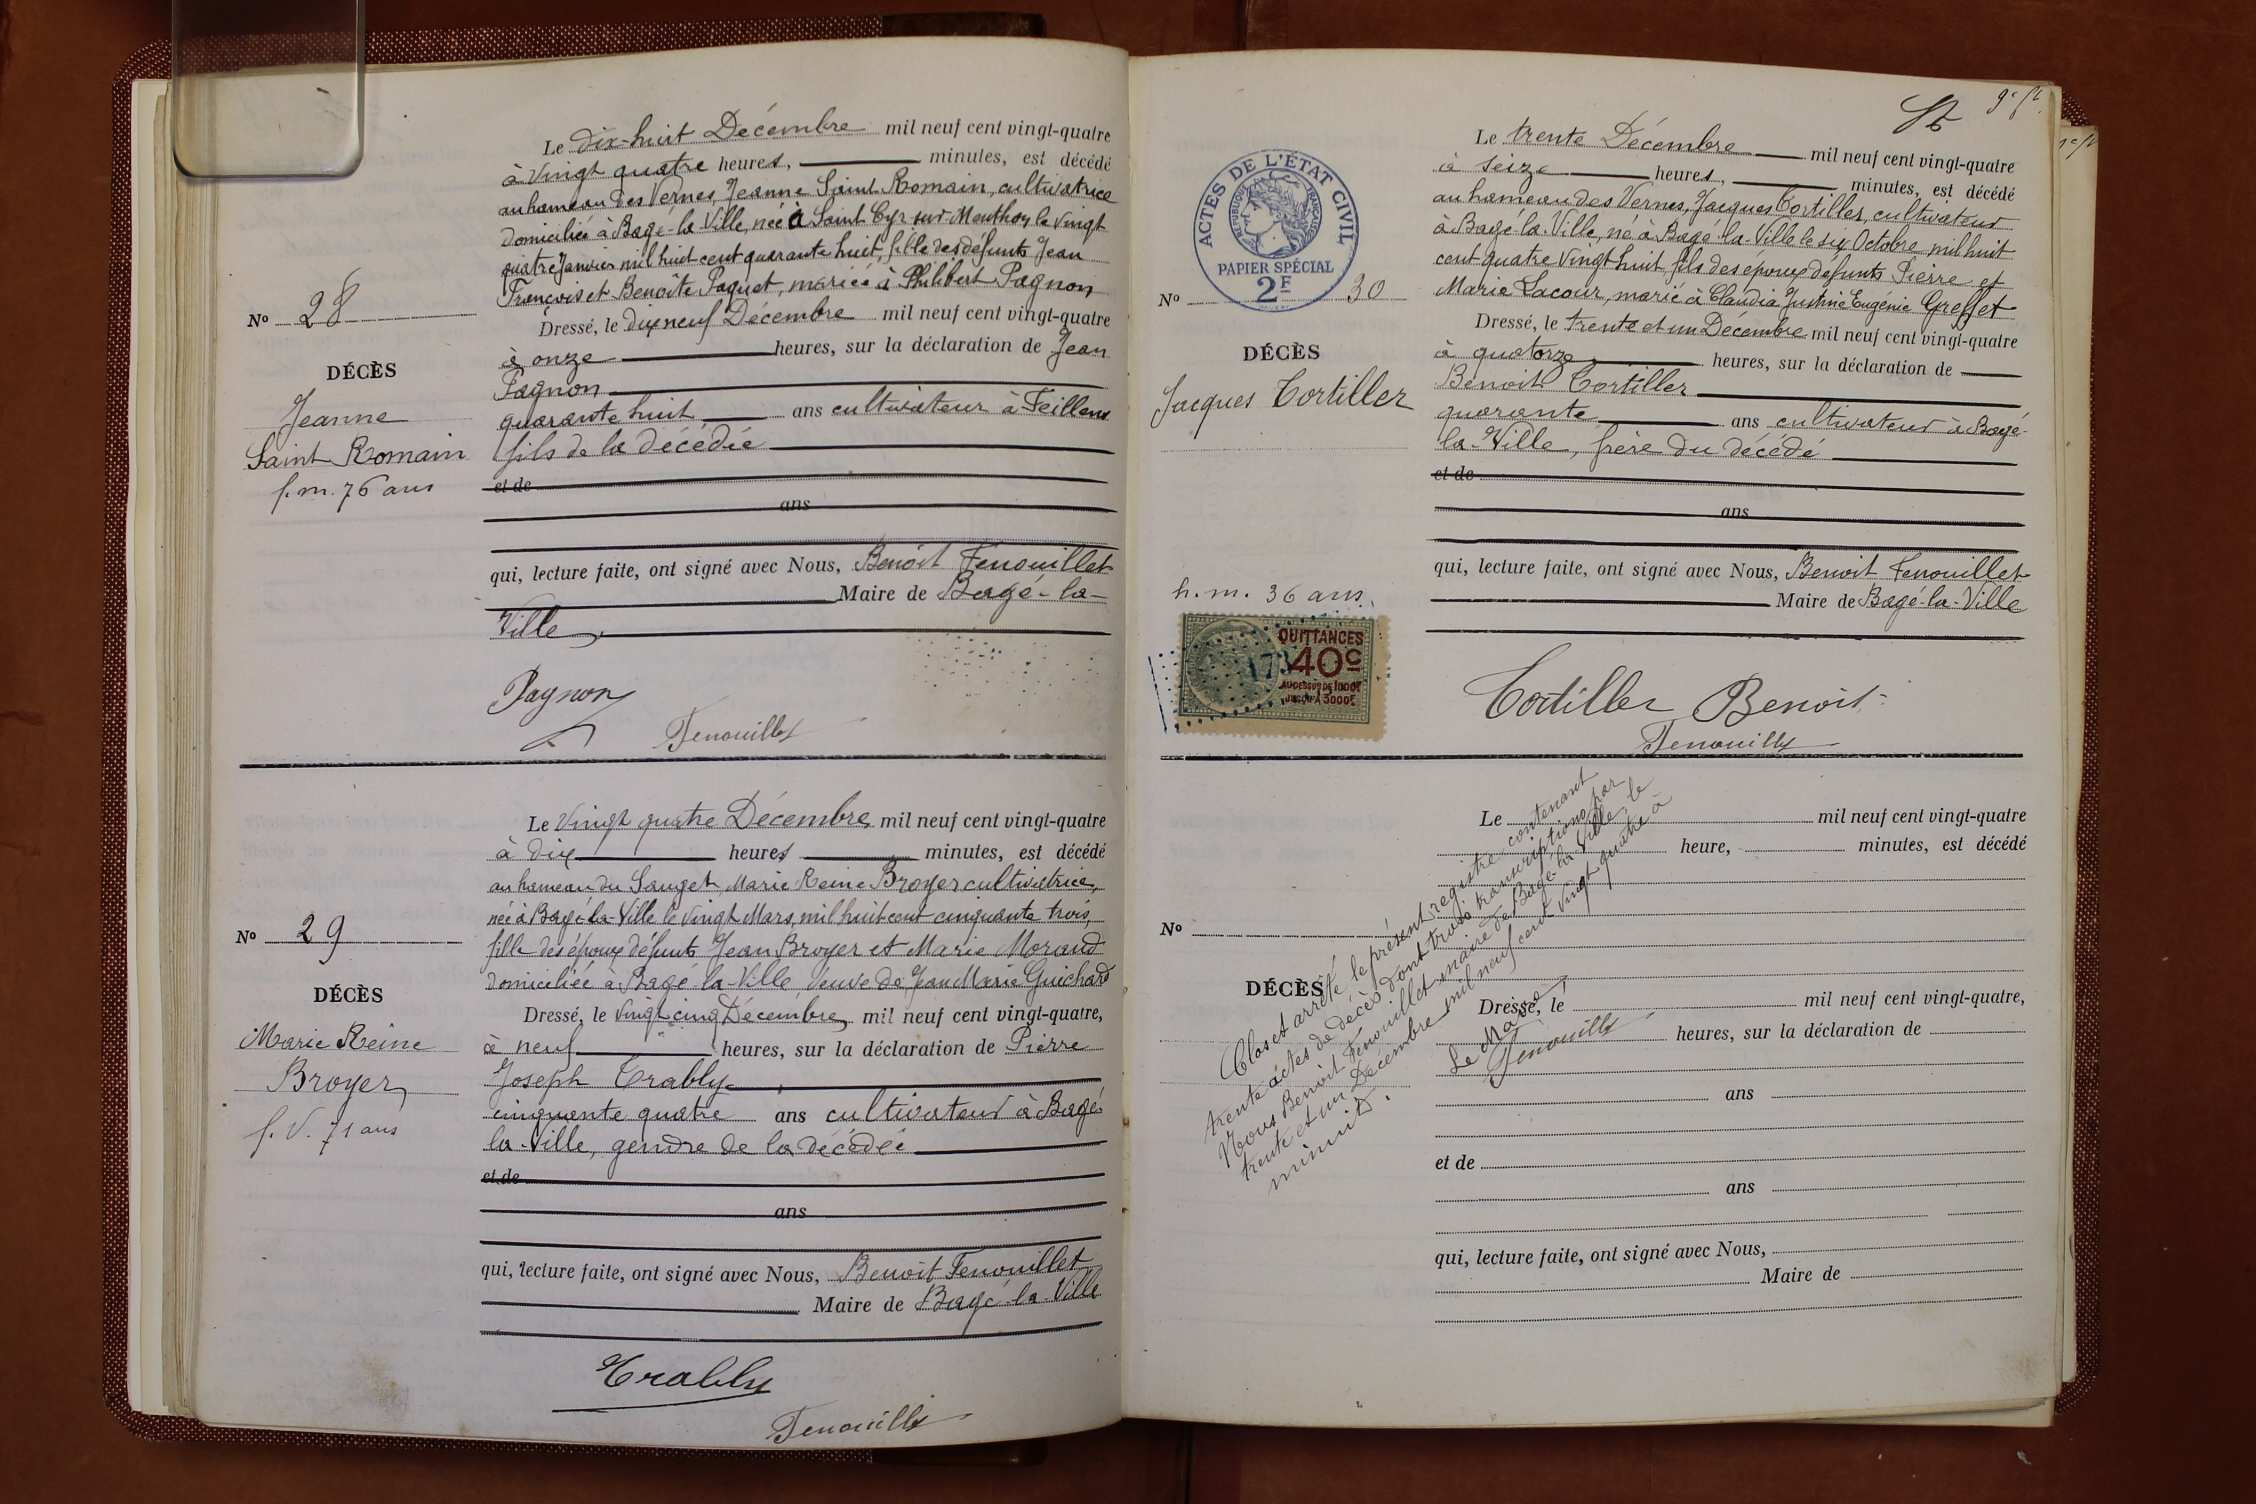 Le dix-huit Décembre mil neuf cent vingt-quatre
à vingt quatre heures, minutes, est décédé
au hameau des Vernes, Jeanne Saint Romain, cultivatrice
domiciliée à Bagé-la-Ville, née à Saint Cyr-sur-Menthon le vingt
quatre Janvier mil huit cent quarante huit, fille des défunts Jean
François et Benoîte Paquet, mariée à Philibert Pagnon
No 28
Dressé, le dix neuf Décembre mil neuf cent vingt-quatre
à onze heures, sur la déclaration de Jean
DÉCÈS
Pagnon
Jeanne
quarante huit ans cultivateur à Feillens
Saint Romain
fils de la décédée
f. m. 76 ans
et de
ans
qui, lecture faite, ont signé avec Nous, Benoit Fenouillet
Maire de Bagé-la-
Ville
Pagnon
Fenouillet
Le vingt quatre Décembre mil neuf cent vingt-quatre
à dix heures minutes, est décédé
au hameau du Sauget, Marie Reine Broyer cultivatrice,
née à Bagé-la-Ville le vingt Mars, mil huit cent cinquante trois,
No 29
fille des époux défunts Jean Broyer et Marie Morand
domiciliée à Bagé-la-Ville, veuve de Jean Marie Guichard
DÉCÈS
Dressé, le vingt cinq Décembre mil neuf cent vingt-quatre,
Marie Reine
à neuf heures, sur la déclaration de Pierre
Broyer
Joseph Trably
f. v. 71 ans
cinquante quatre ans cultivateur à Bagé-
la-Ville, gendre de la décédée
et de
ans
qui, lecture faite, ont signé avec Nous, Benoit Fenouillet
Maire de Bagé-la-Ville
Trably
Fenouillet
ACTES DE L'ÉTAT CIVIL
REPUBLIQUE FRANÇAISE
PAPIER SPÉCIAL
2F
Le trente Décembre mil neuf cent vingt-quatre
à seize heures, minutes, est décédé
au hameau des Vernes, Jacques Tortiller, cultivateur
à Bagé-la-Ville, né à Bagé-la-Ville le six Octobre mil huit
cent quatre vingt huit, fils des époux défunts Pierre et
No 30
Marie Lacour, marié à Claudia Justine Eugénie Greffet
Dressé, le trente et un Décembre mil neuf cent vingt-quatre
DÉCÈS
à quatorze heures, sur la déclaration de
Jacques Tortiller
Benoit Tortiller
quarante ans cultivateur à Bagé-
la-Ville, frère du décédé
et de
ans
qui, lecture faite, ont signé avec Nous, Benoit Fenouillet
h. m. 36 ans
Maire de Bagé-la-Ville
QUITTANCES
40c
AU-DESSUS DE 1000F
JUSQU'A 3000F
Tortiller Benoit
Fenouillet
Le mil neuf cent vingt-quatre
heure, minutes, est décédé
No
DÉCÈS
Dressé, le mil neuf cent vingt-quatre,
heures, sur la déclaration de
ans
et de
ans
qui, lecture faite, ont signé avec Nous,
Maire de
Clos et arrêté le présent registre contenant
trente actes de décès dont trois transcriptions par
Nous Benoit Fenouillet maire de Bagé-la-Ville le
trente et un Décembre mil neuf cent vingt quatre à
minuit.
Le Maire
Fenouillet